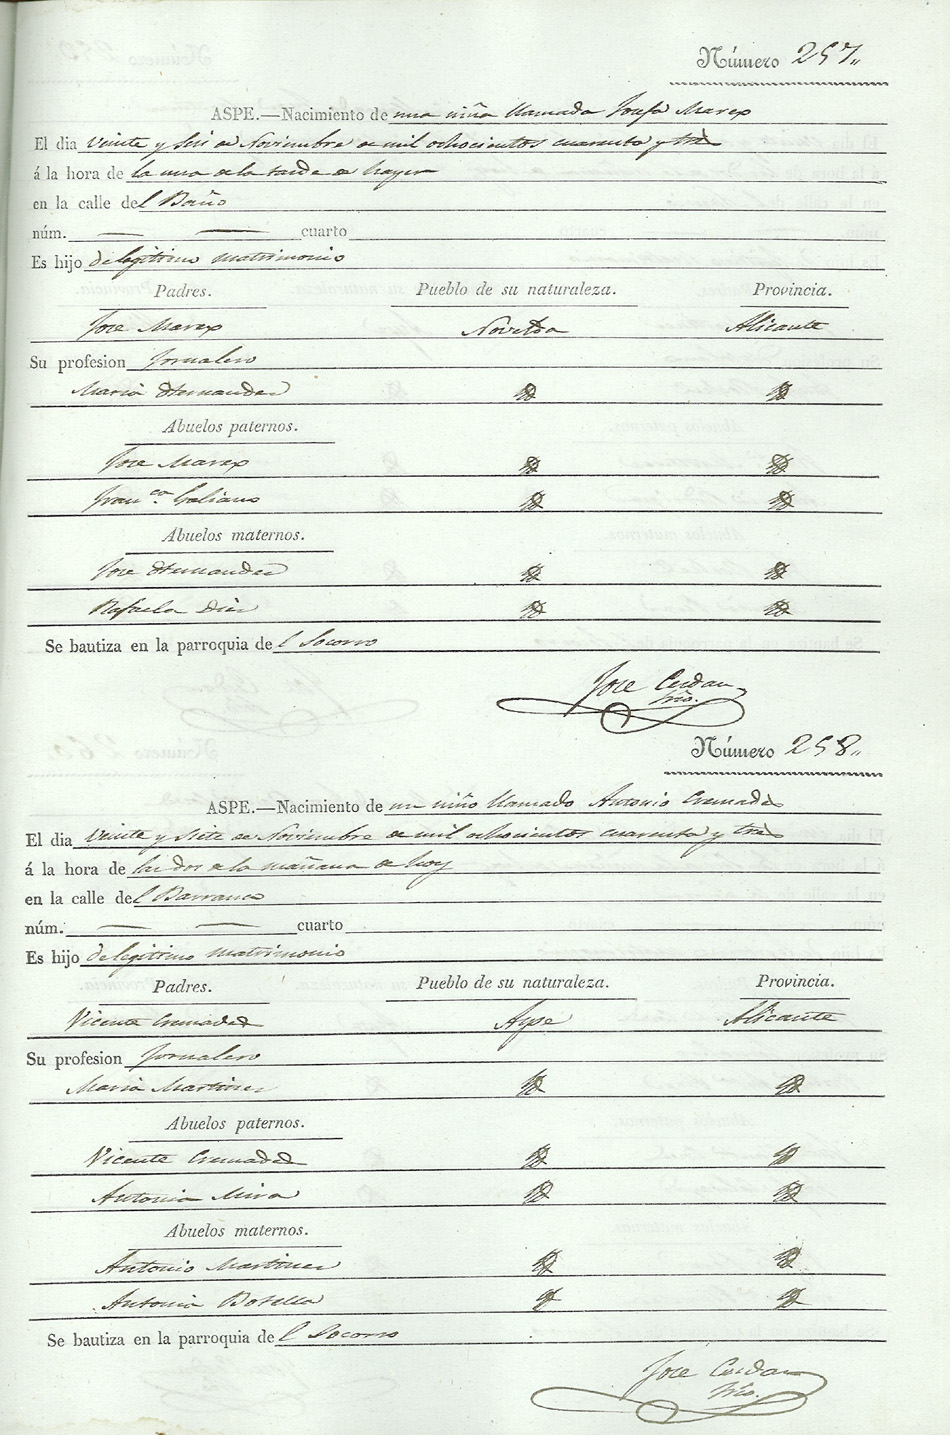 Número 257,,
ASPE.—Nacimiento de una niña llamada Josefa Marco
El dia veinte y seis de Noviembre de mil ochocientos cuarenta y tres
á la hora de la una de la tarde de hayer
en la calle del Baño
núm. — — cuarto
Es hijo de legitimo matrimonio
Padres. Pueblo de su naturaleza. Provincia.
Jose Marco Novelda Alicante
Su profesion Jornalero
Maria Hernandez
Abuelos paternos.
Jose Marco
Fran.ca Galiano
Abuelos maternos.
Jose Hernandez
Rafaela Diez
Se bautiza en la parroquia del Socorro
Jose Cerdan
Srio.
Número 258,,
ASPE.—Nacimiento de un niño llamado Antonio Cremades
El dia veinte y siete de Noviembre de mil ochocientos cuarenta y tres
á la hora de las dos de la mañana de hoy
en la calle del Barranco
núm. — — cuarto
Es hijo de legitimo matrimonio
Padres. Pueblo de su naturaleza. Provincia.
Vicente Cremades Aspe Alicante
Su profesion Jornalero
Maria Martinez
Abuelos paternos.
Vicente Cremades
Antonia Mira
Abuelos maternos.
Antonio Martinez
Antonia Botella
Se bautiza en la parroquia del Socorro
Jose Cerdan
Srio.